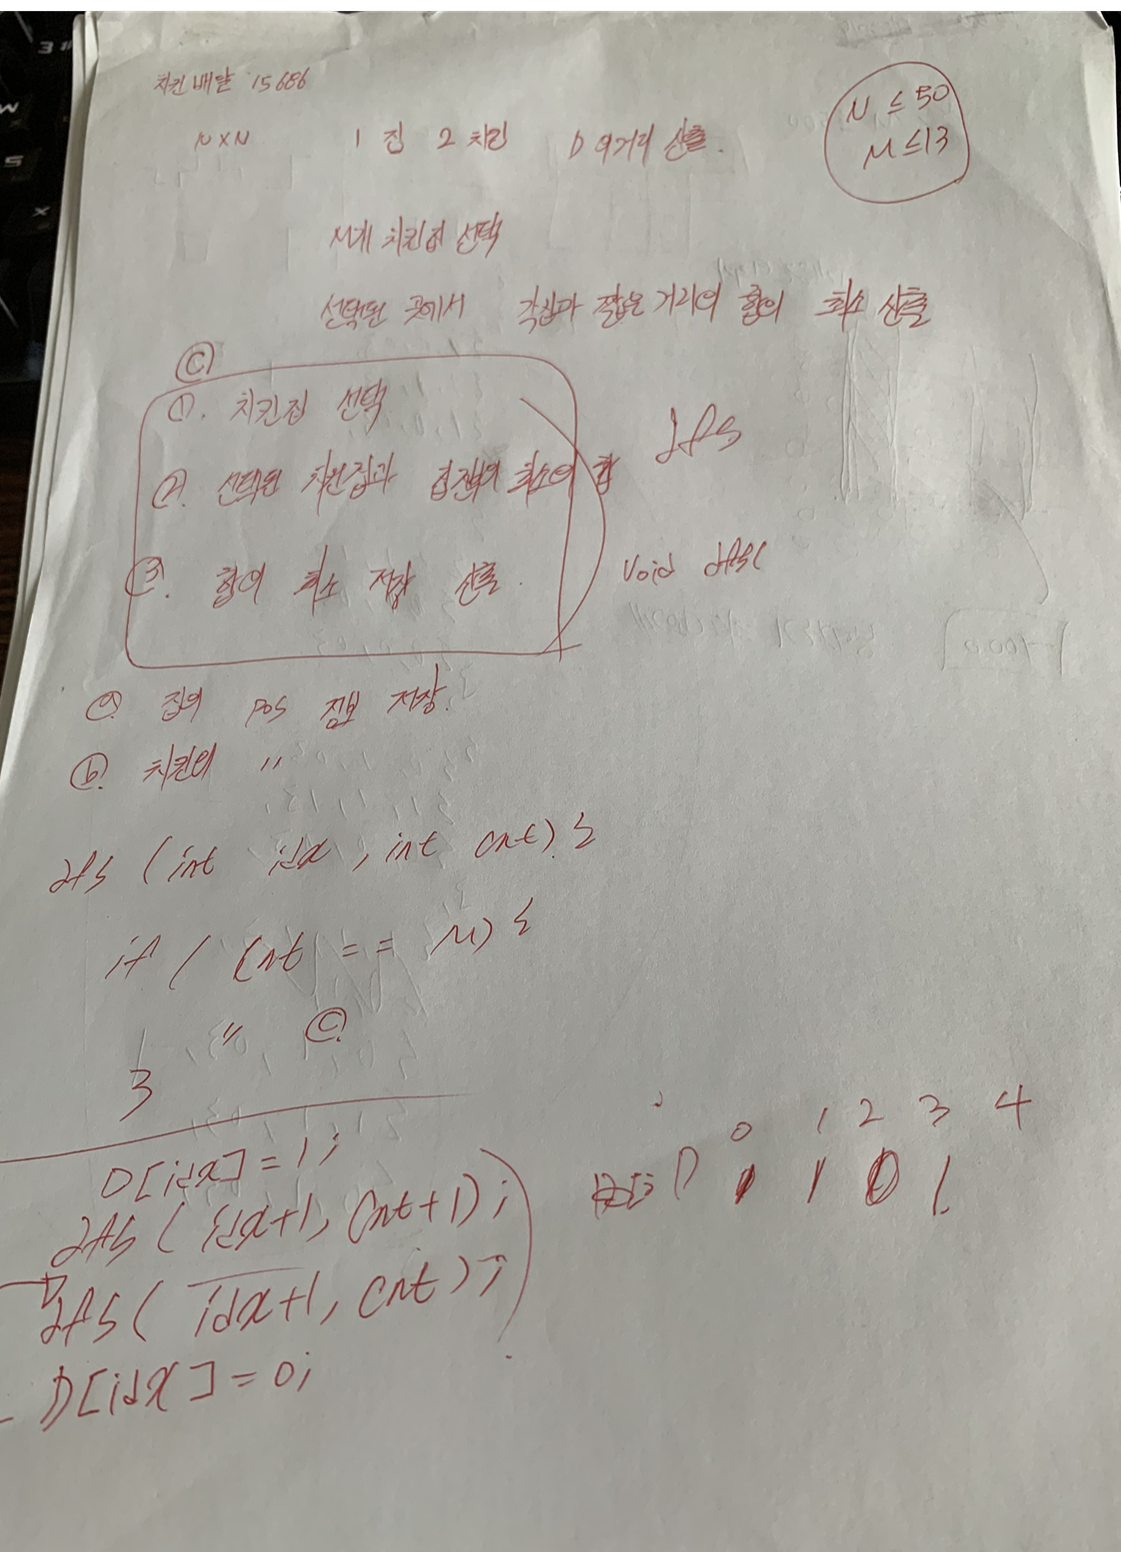 치킨 배달 15686
N X N 1 집 2 치킨 D 의 거리 산출.
N ≤ 50
M ≤ 13
M개 치킨집 선택
선택된 곳에서 각집과 짧은 거리의 합의 최소 산출
ⓒ
①. 치킨집 선택
②. 선택된 치킨집과 의 최소의 합
dfs
③. 합의 최소 저장 산출.
void dfs(
ⓐ 집의 pos 정보 저장.
ⓑ 치킨의 〃
dfs (int idx, int cnt) {
if ( cnt == M) {
〃 ⓒ
}
D[idx] = 1;
dfs ( idx+1, cnt+1);
dfs ( idx+1, cnt);
D[idx] = 0;
0 1 2 3 4
D 1 1 0 1